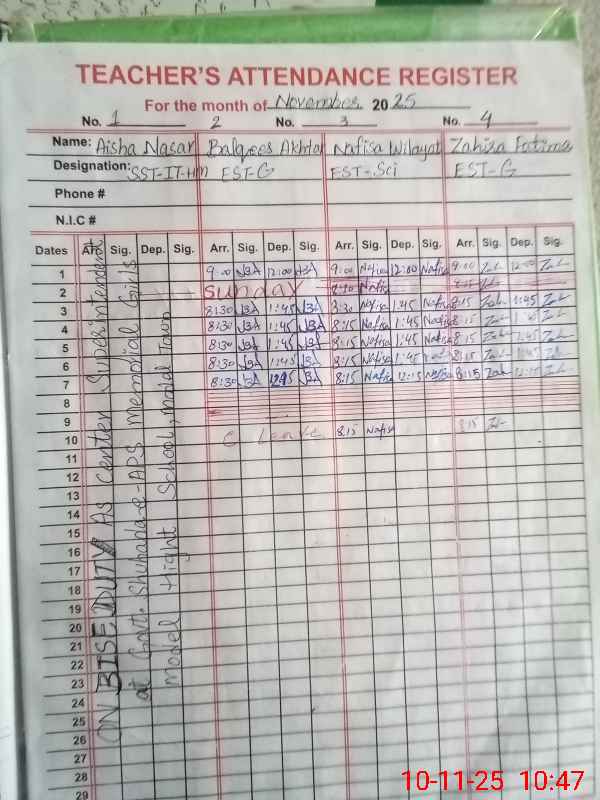 TEACHER'S ATTENDANCE REGISTER
For the month of November 2025
No. 1 2 No. 3 No. 4
Name: Aisha Nasar Balqees Akhtar Nafisa Wilayat Zahira Fatima
Designation: SST-IT-HM EST-G EST-Sci EST-G
Phone #
N.I.C #
Dates Arr. Sig. Dep. Sig. Arr. Sig. Dep. Sig. Arr. Sig. Dep. Sig. Arr. Sig. Dep. Sig.
1 9:00 12:00 9:00 Nafisa 12:00 Nafisa 9:00 Zah 12:00 Zah
2 Sunday
3 8:30 1:45 8:30 Nafisa 1:45 Nafisa 8:15 Zah 1:45 Zah
4 8:30 1:45 8:15 Nafisa 1:45 Nafisa 8:15 Zah 1:45 Zah
5 8:30 1:45 8:15 Nafisa 1:45 Nafisa 8:15 Zah 1:45 Zah
6 8:30 1:45 8:15 Nafisa 1:45 8:15 Zah 1:45 Zah
7 8:30 8:15 Nafisa 12:15 Nafisa 8:15 Zah 12:15 Zah
8
9
10 C Leave 8:15 Nafisa 8:15 Zah
11
12
13
14
15
16
17
18
19
20
21
22
23
24
25
26
27
28
29
ON BISE DUTY AS Center Superintendent
at Govt. Shuhada-e-APS Memorial Girls
Model Hight School, Model Town
10-11-25 10:47